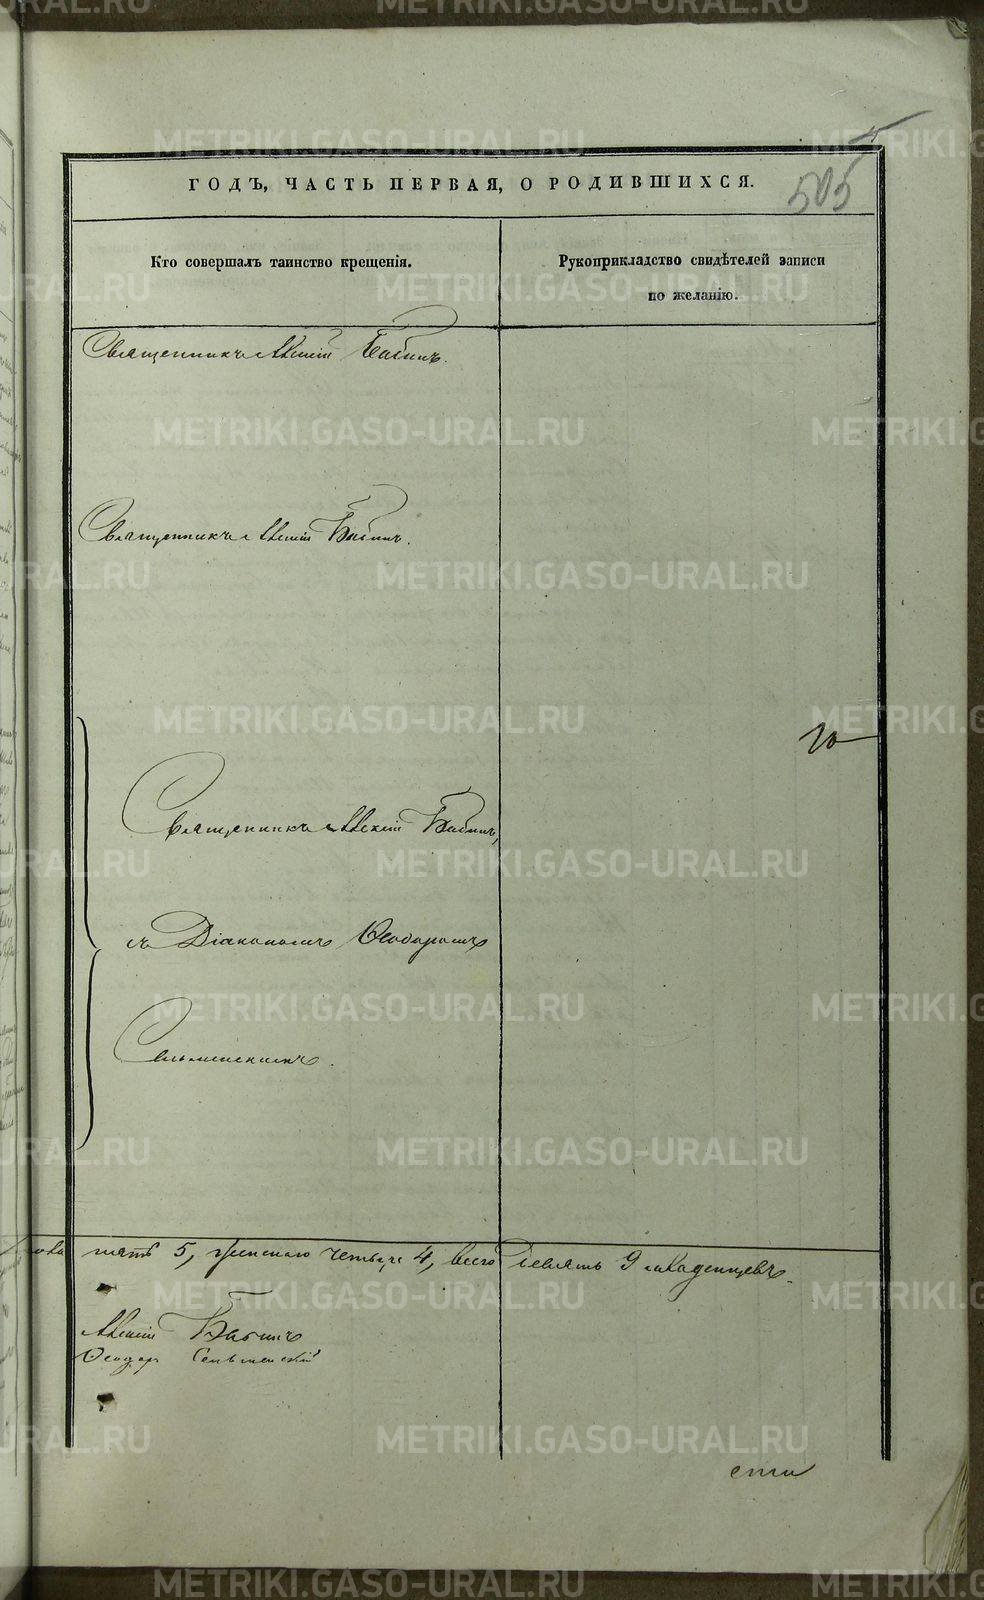 505
ГОДЪ, ЧАСТЬ ПЕРВАЯ, О РОДИВШИХСЯ.
Кто совершалъ таинство крещенія.
Рукоприкладство свидѣтелей записи
по желанію.
Священникъ Алексій Бабинъ.
Священникъ Алексій Бабинъ.
Священникъ Алексій Бабинъ,
съ Діакономъ Ѳеодоромъ
пять 5, женскаго четыре 4, всего девять 9 младенцевъ.
Алексій Бабинъ
Ѳеодоръ
METRIKI.GASO-URAL.RU